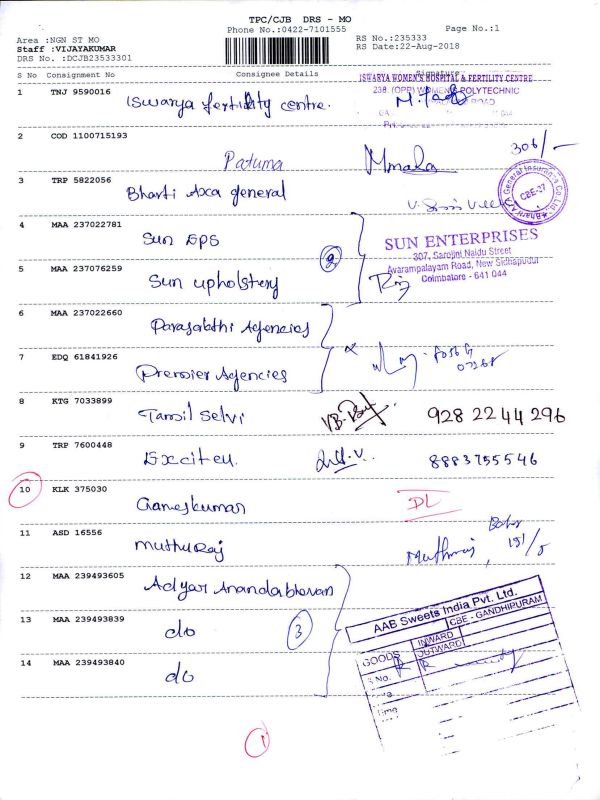 TPC/CJB DRS - MO
Phone No.:0422-7101555
Page No.:1
Area :NGN ST MO
Staff :VIJAYAKUMAR
DRS No. :DCJB23533301
RS No.:235333
RS Date:22-Aug-2018
S No Consignment No Consignee Details Signature
ISWARYA WOMEN'S HOSPITAL & FERTILITY CENTRE
238, (OPP) WOMEN'S POLYTECHNIC
ROAD
1 TNJ 9590016 Iswarya fertility centre.
2 COD 1100715193
Patuma
306/-
3 TRP 5822056
Bharti Axa general
Bharti AXA General Insurance Co. Ltd.
CBE-27
4 MAA 237022781
Sun EPS
2
SUN ENTERPRISES
307, Sarojini Naidu Street
Avarampalayam Road, New Sidhapudur
Coimbatore - 641 044
5 MAA 237076259
Sun upholstery
6 MAA 237022660
Parasakthi Agencies
7 EDQ 61841926
Premier Agencies
8 KTG 7033899
Tamil Selvi
928 22 44 296
9 TRP 7600448
8883755546
10 KLK 375030
Ganeskumar
DL
11 ASD 16556
Muthuraj
Muthuraj
12 MAA 239493605
Adyar Anandabhavan
13 MAA 239493839
do
3
14 MAA 239493840
do
AAB Sweets India Pvt. Ltd.
CBE - GANDHIPURAM
GOODS
INWARD
OUTWARD
S.No.
Time
1